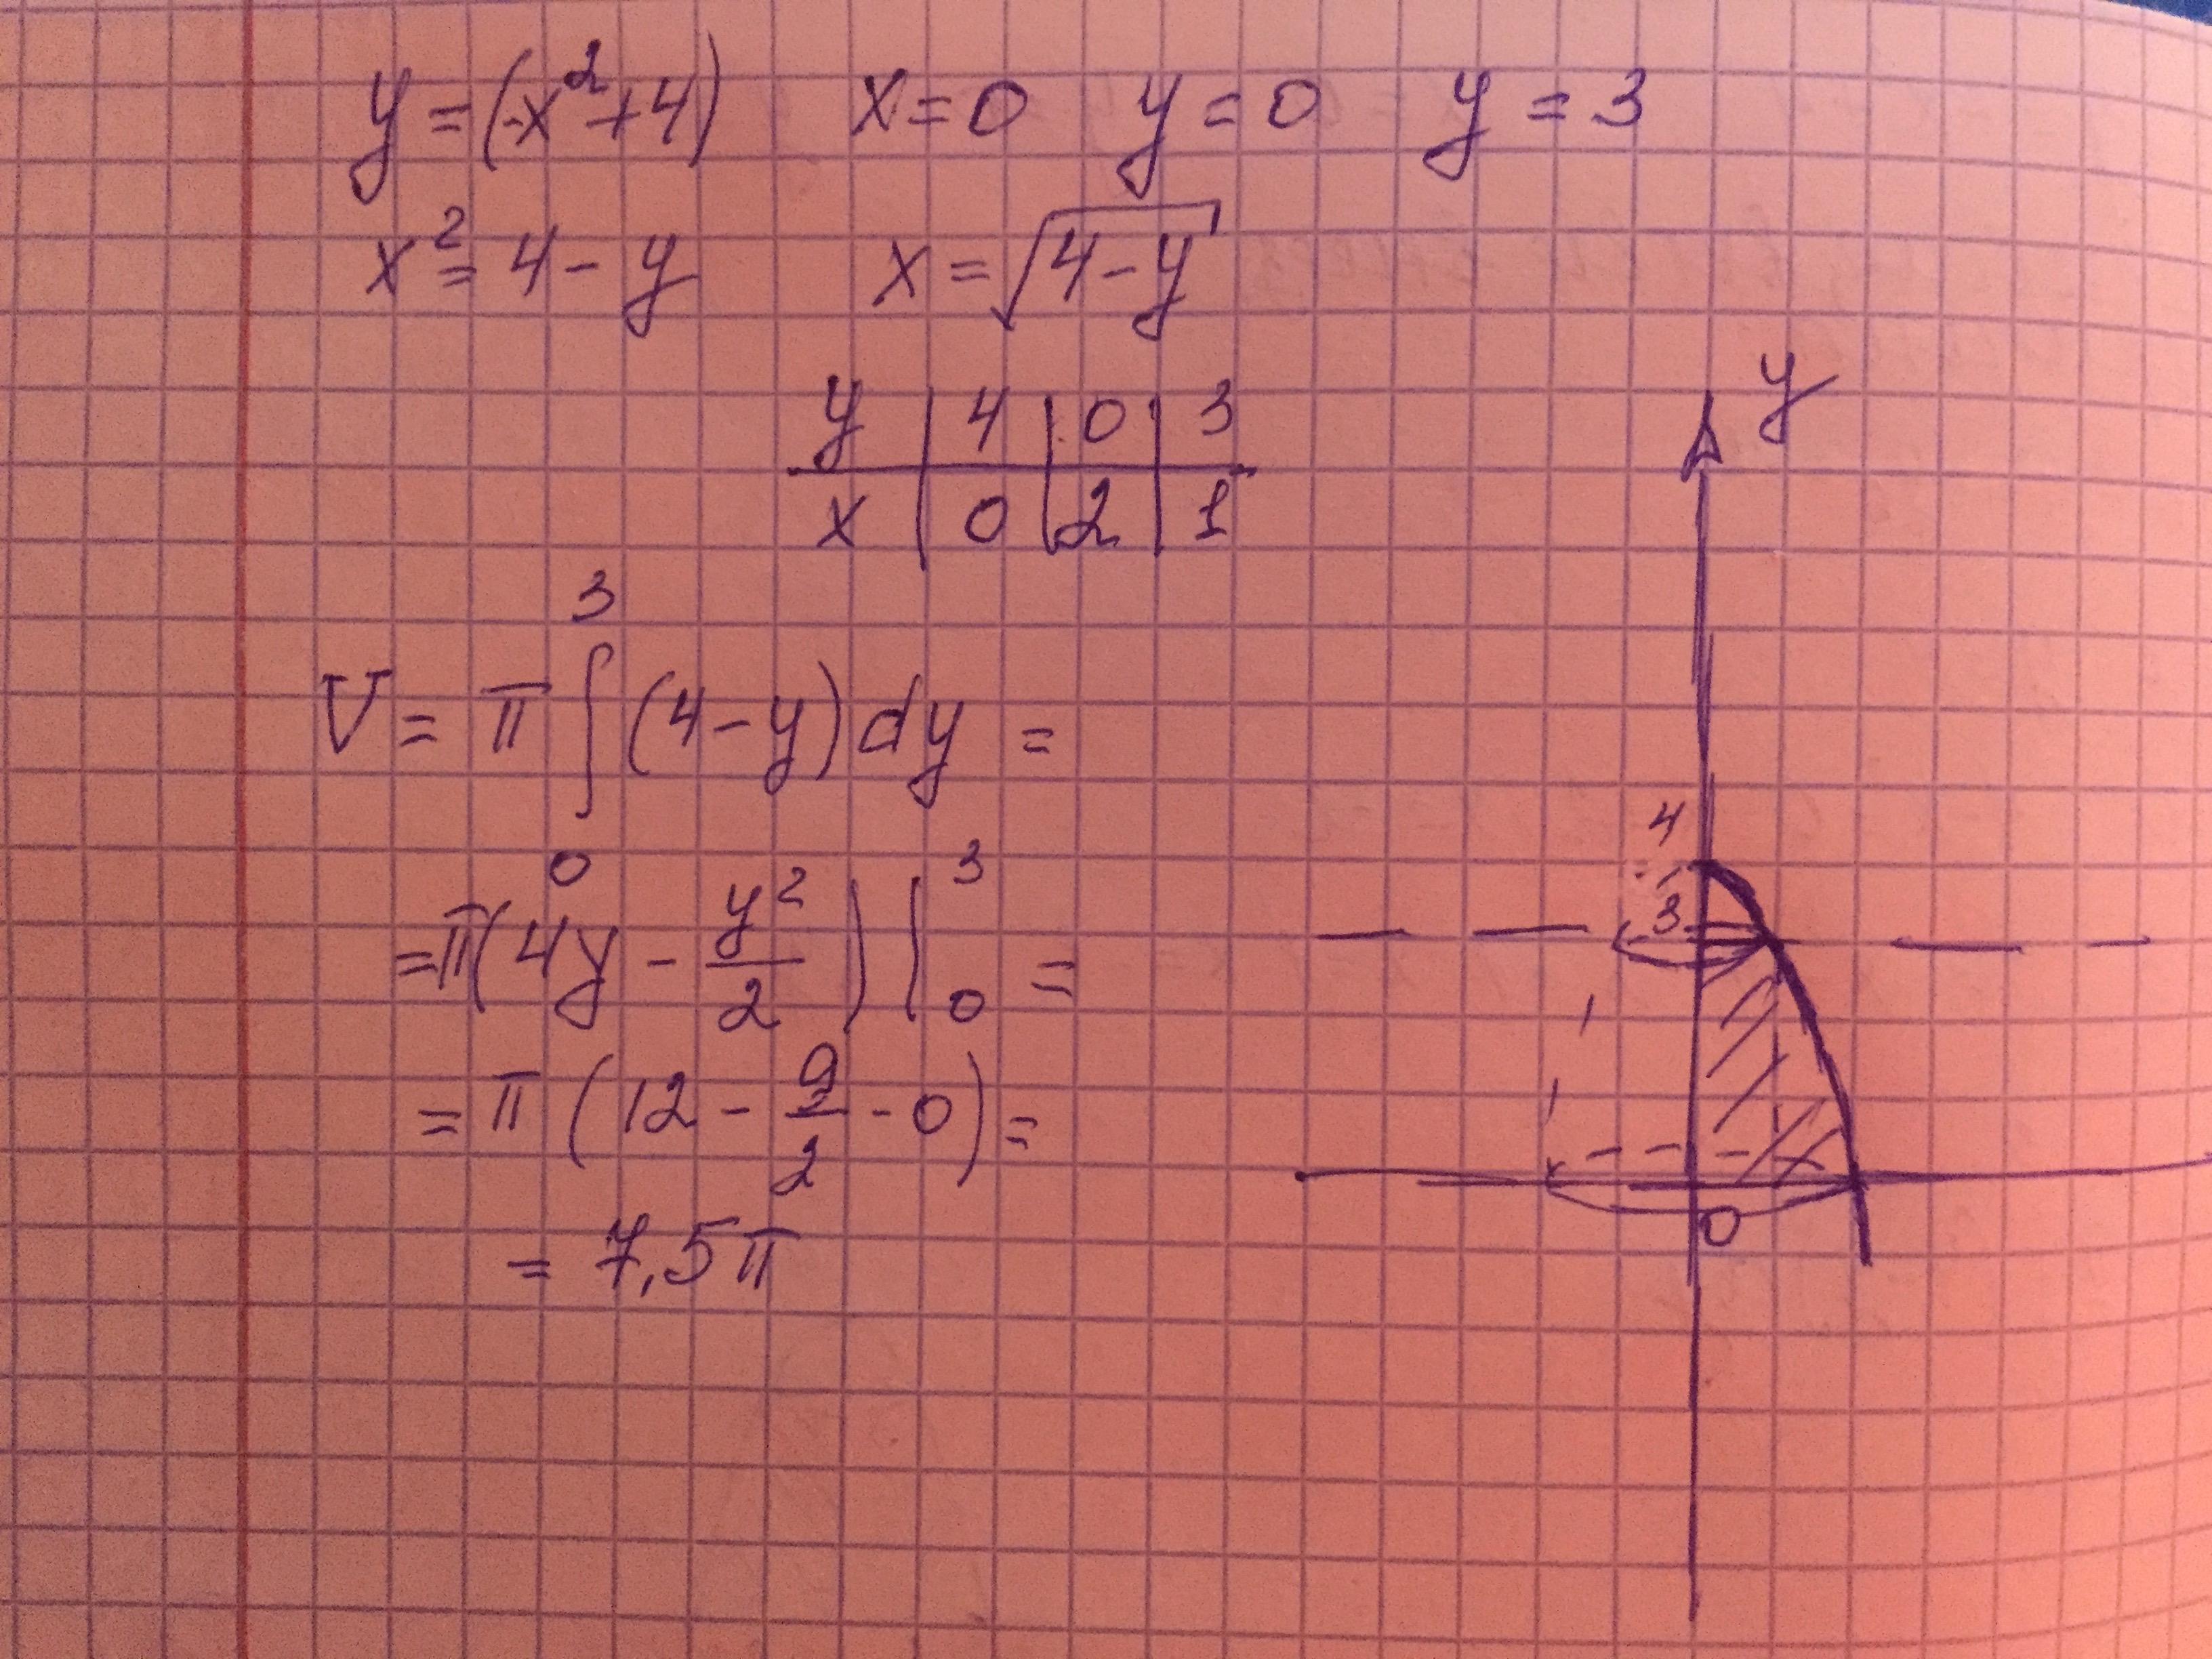 y = (-x² + 4)   x = 0   y = 0   y = 3
x² = 4 - y   x = √(4 - y)
y | 4 | 0 | 3
x | 0 | 2 | 1
V = π ∫₀³ (4 - y) dy =
= π(4y - y²/2) |₀³ =
= π (12 - 9/2 - 0) =
= 7,5π
y
4
3
0